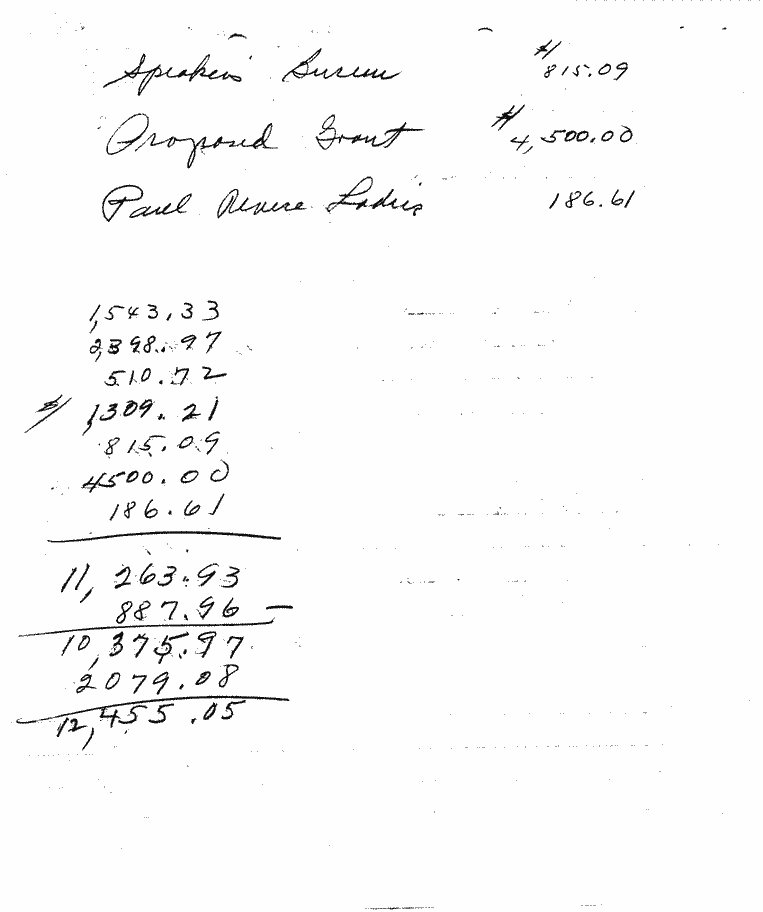 Speakers' Bureau $815.09
Proposed Grant $4,500.00
Paul Revere Ladies 186.61
1,543.33
2,398.97
510.72
$ 1,309.21
815.09
4500.00
186.61
11,263.93
887.96 —
10,375.97
2079.08
12,455.05